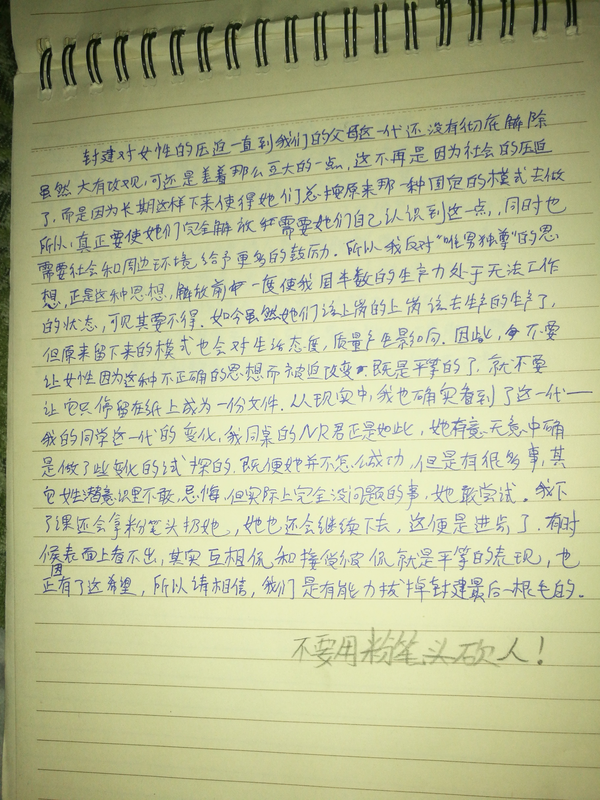 封建对女性的压迫一直到我们的父母这一代还没有彻底解除
虽然大有改观,可还是差着那么豆大的一点,这不再是因为社会的压迫
了,而是因为长期这样下来使得她们总按原来那一种固定的模式去做
所以,真正要使她们完全解放我需要她们自己认识到这一点,同时也
需要社会和周边环境给予更多的鼓励。所以我反对“唯男独尊”的思
想,正是这种思想,解放前一度使我国半数的生产力处于无法工作
的状态,可见其要不得。如今虽然她们该上岗的上岗该去生产的生产了,
但原来留下来的模式也会对生活态度,质量产生影响。因此,不要
让女性因为这种不正确的思想而被迫改变。既是平等的了,就不要
让它只停留在纸上成为一份文件。从现实中,我也确实看到了这一代——
我的同学这一代的变化,我同桌的NR君正是如此,她有意无意中确
是做了些变化的试探的,既便她并不怎么成功,但是有很多事,其
它女性潜意识里不敢,忌悔,但实际上完全没问题的事,她敢尝试。我下
了课还会拿粉笔头扔她,她也还会继续下去,这便是进步了。有时
候表面上看不出,其实互相侃和接受彼侃就是平等的表现,也
正因有了这希望,所以请相信,我们是有能力拔掉封建最后一根毛的。
不要用粉笔头砍人!